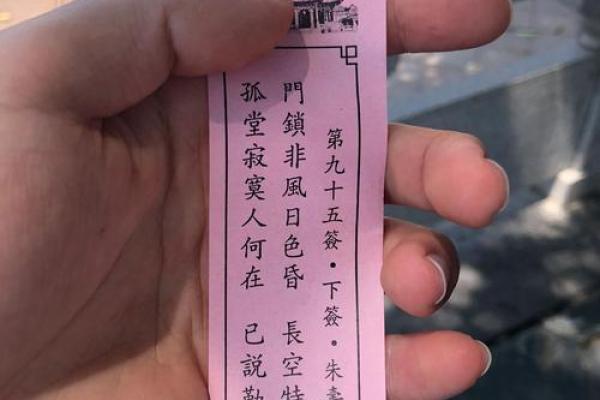 第九十五簽・下簽・朱壽
門鎖非風日色昏 長空特
孤堂寂寞人何在 已說勒